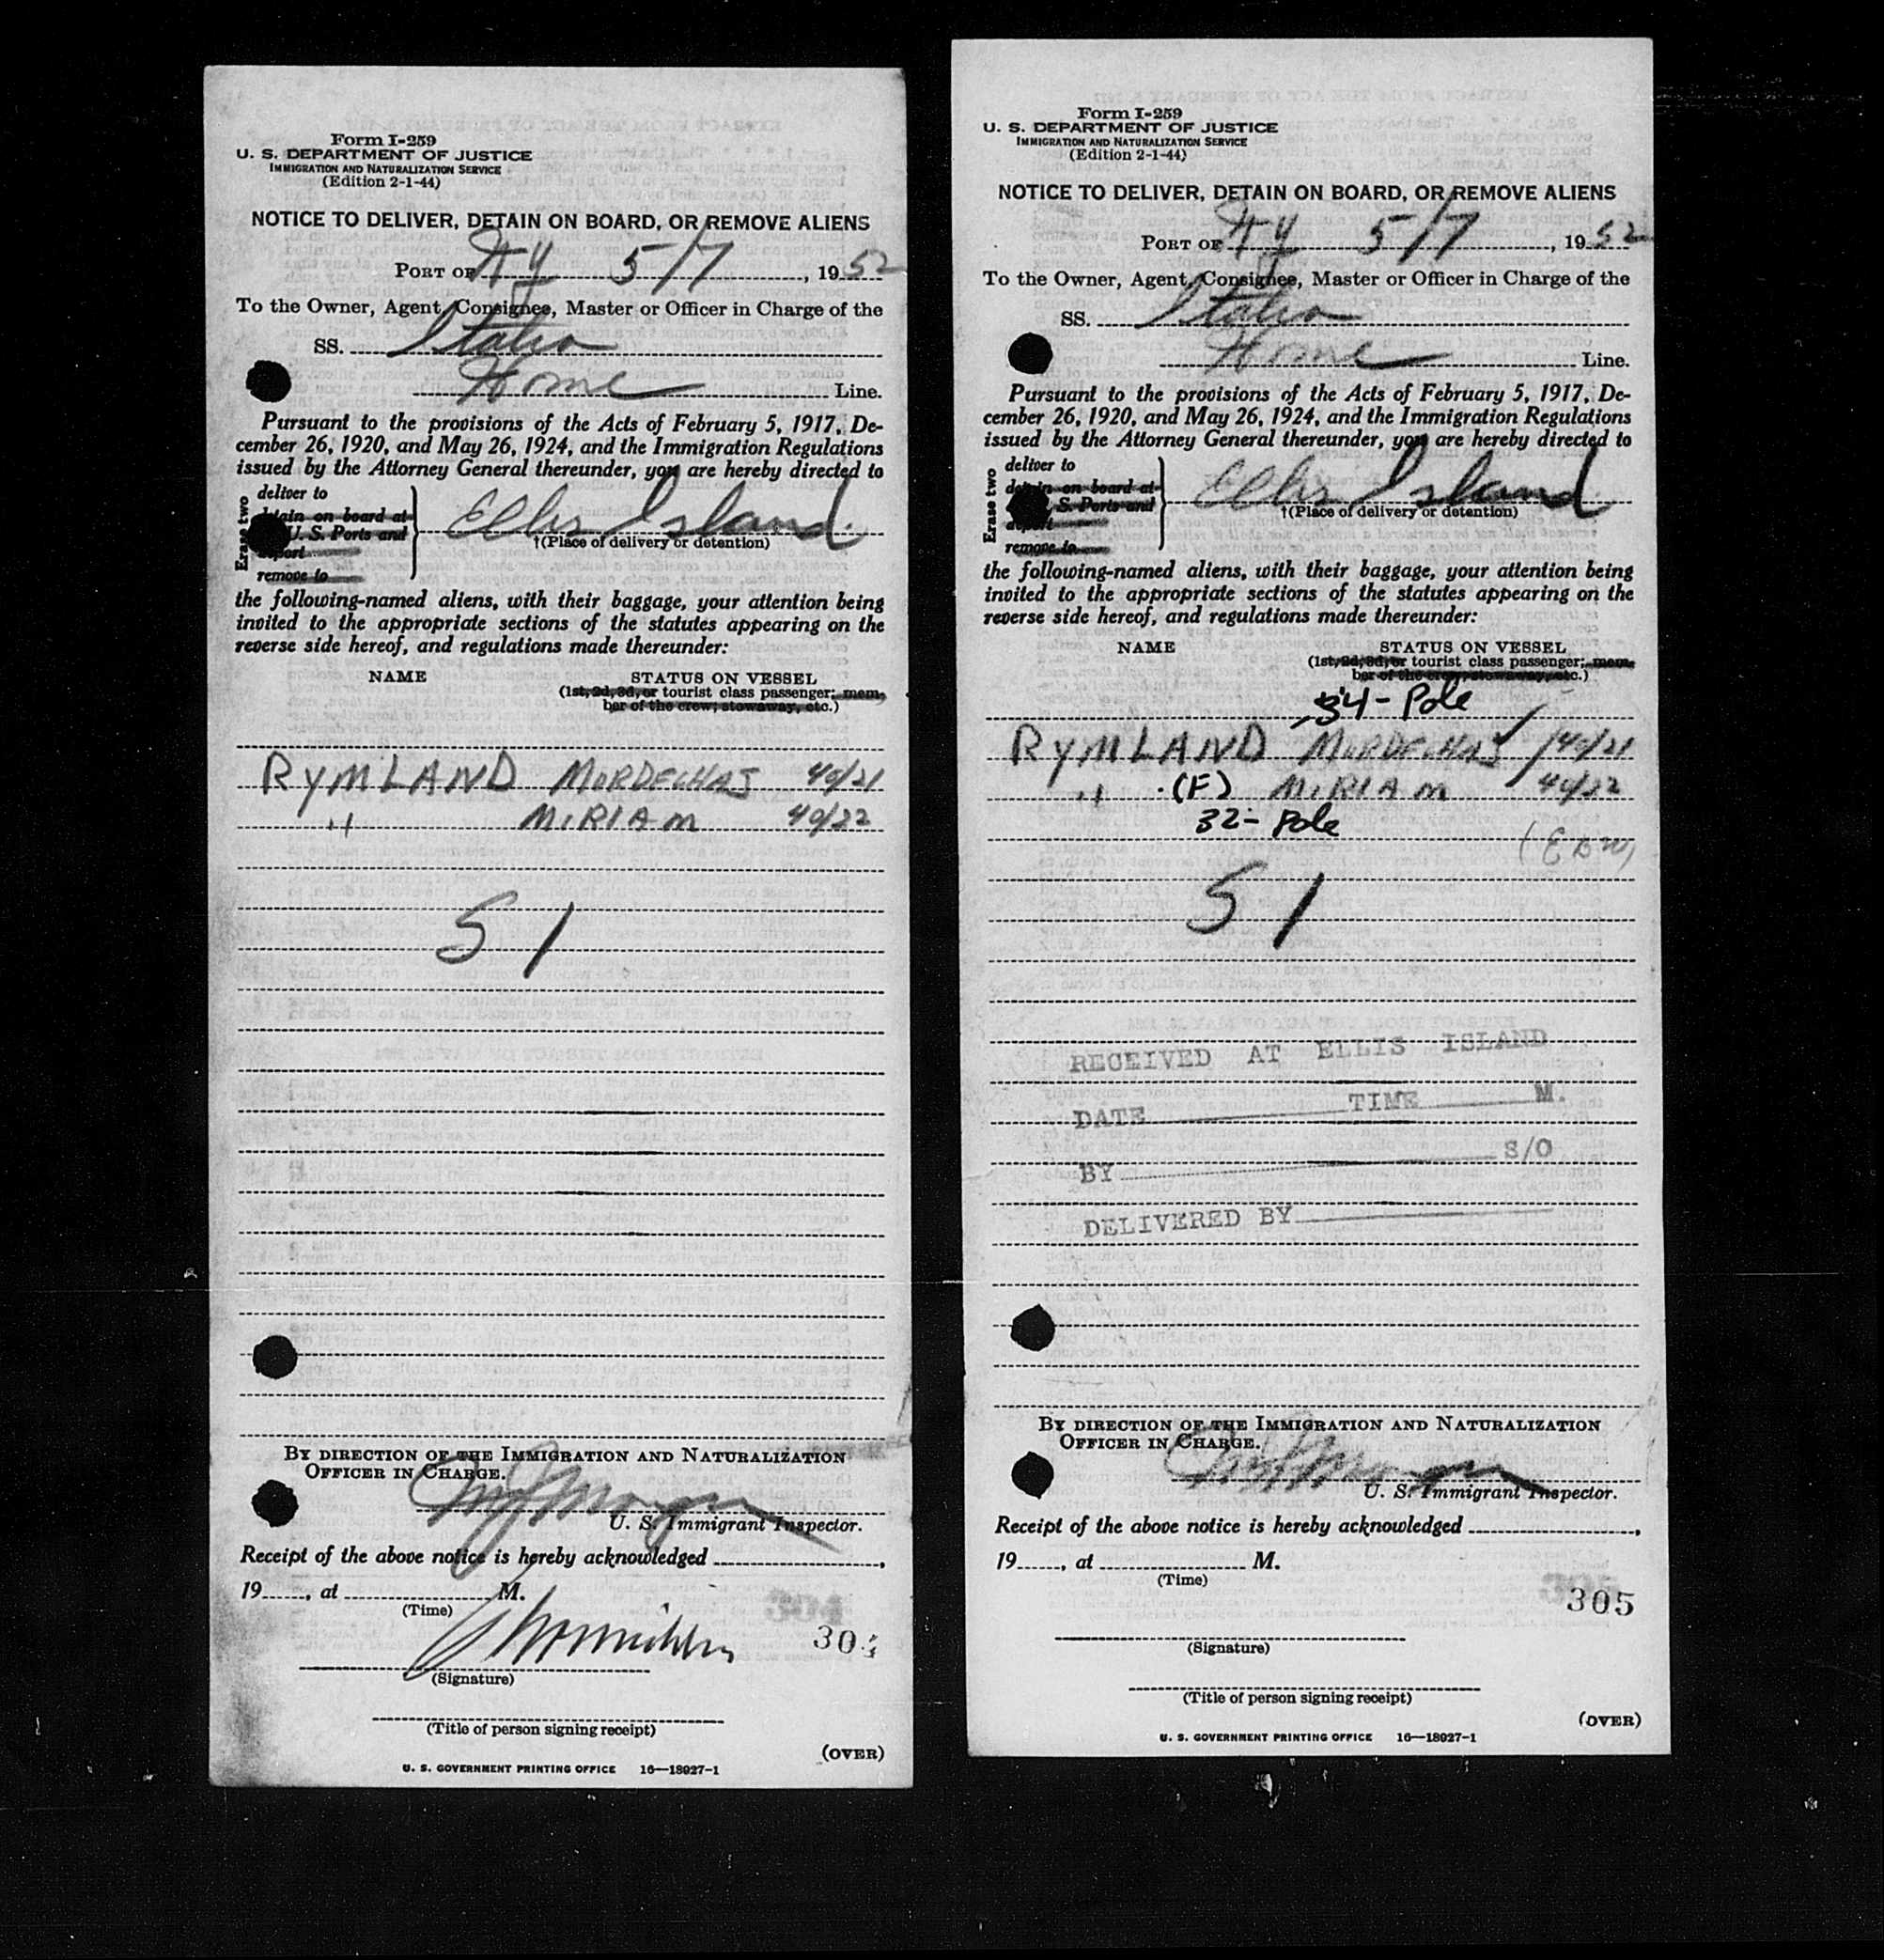 Form I-259
U. S. DEPARTMENT OF JUSTICE
IMMIGRATION AND NATURALIZATION SERVICE
(Edition 2-1-44)
NOTICE TO DELIVER, DETAIN ON BOARD, OR REMOVE ALIENS
PORT OF NY 5/7, 1952
To the Owner, Agent, Consignee, Master or Officer in Charge of the
SS. Italia
Home Line.
Pursuant to the provisions of the Acts of February 5, 1917, De-
cember 26, 1920, and May 26, 1924, and the Immigration Regulations
issued by the Attorney General thereunder, you are hereby directed to
Erase two
deliver to
detain on board at
U. S. Ports and
report
remove to
Ellis Island
†(Place of delivery or detention)
the following-named aliens, with their baggage, your attention being
invited to the appropriate sections of the statutes appearing on the
reverse side hereof, and regulations made thereunder:
NAME STATUS ON VESSEL
(1st, 2d, 3d, or tourist class passenger; mem-
ber of the crew; stowaway, etc.)
RYMLAND MORDECHAJ 40/21
" MIRIAM 40/22
51
BY DIRECTION OF THE IMMIGRATION AND NATURALIZATION
OFFICER IN CHARGE.
U. S. Immigrant Inspector.
Receipt of the above notice is hereby acknowledged ,
19 , at M.
(Time)
30
(Signature)
(Title of person signing receipt)
(OVER)
U. S. GOVERNMENT PRINTING OFFICE 16—18927-1
Form I-259
U. S. DEPARTMENT OF JUSTICE
IMMIGRATION AND NATURALIZATION SERVICE
(Edition 2-1-44)
NOTICE TO DELIVER, DETAIN ON BOARD, OR REMOVE ALIENS
PORT OF NY 5/7, 1952
To the Owner, Agent, Consignee, Master or Officer in Charge of the
SS. Italia
Home Line.
Pursuant to the provisions of the Acts of February 5, 1917, De-
cember 26, 1920, and May 26, 1924, and the Immigration Regulations
issued by the Attorney General thereunder, you are hereby directed to
Erase two
deliver to
detain on board at
U. S. Ports and
report
remove to
Ellis Island
†(Place of delivery or detention)
the following-named aliens, with their baggage, your attention being
invited to the appropriate sections of the statutes appearing on the
reverse side hereof, and regulations made thereunder:
NAME STATUS ON VESSEL
(1st, 2d, 3d, or tourist class passenger; mem-
ber of the crew; stowaway, etc.)
34 - Pole
RYMLAND MORDECHAJ 40/21
" (F) MIRIAM 40/22
32 - Pole
51
RECEIVED AT ELLIS ISLAND
DATE TIME M.
BY S/O
DELIVERED BY
BY DIRECTION OF THE IMMIGRATION AND NATURALIZATION
OFFICER IN CHARGE.
U. S. Immigrant Inspector.
Receipt of the above notice is hereby acknowledged ,
19 , at M.
(Time)
305
(Signature)
(Title of person signing receipt)
(OVER)
U. S. GOVERNMENT PRINTING OFFICE 16—18927-1